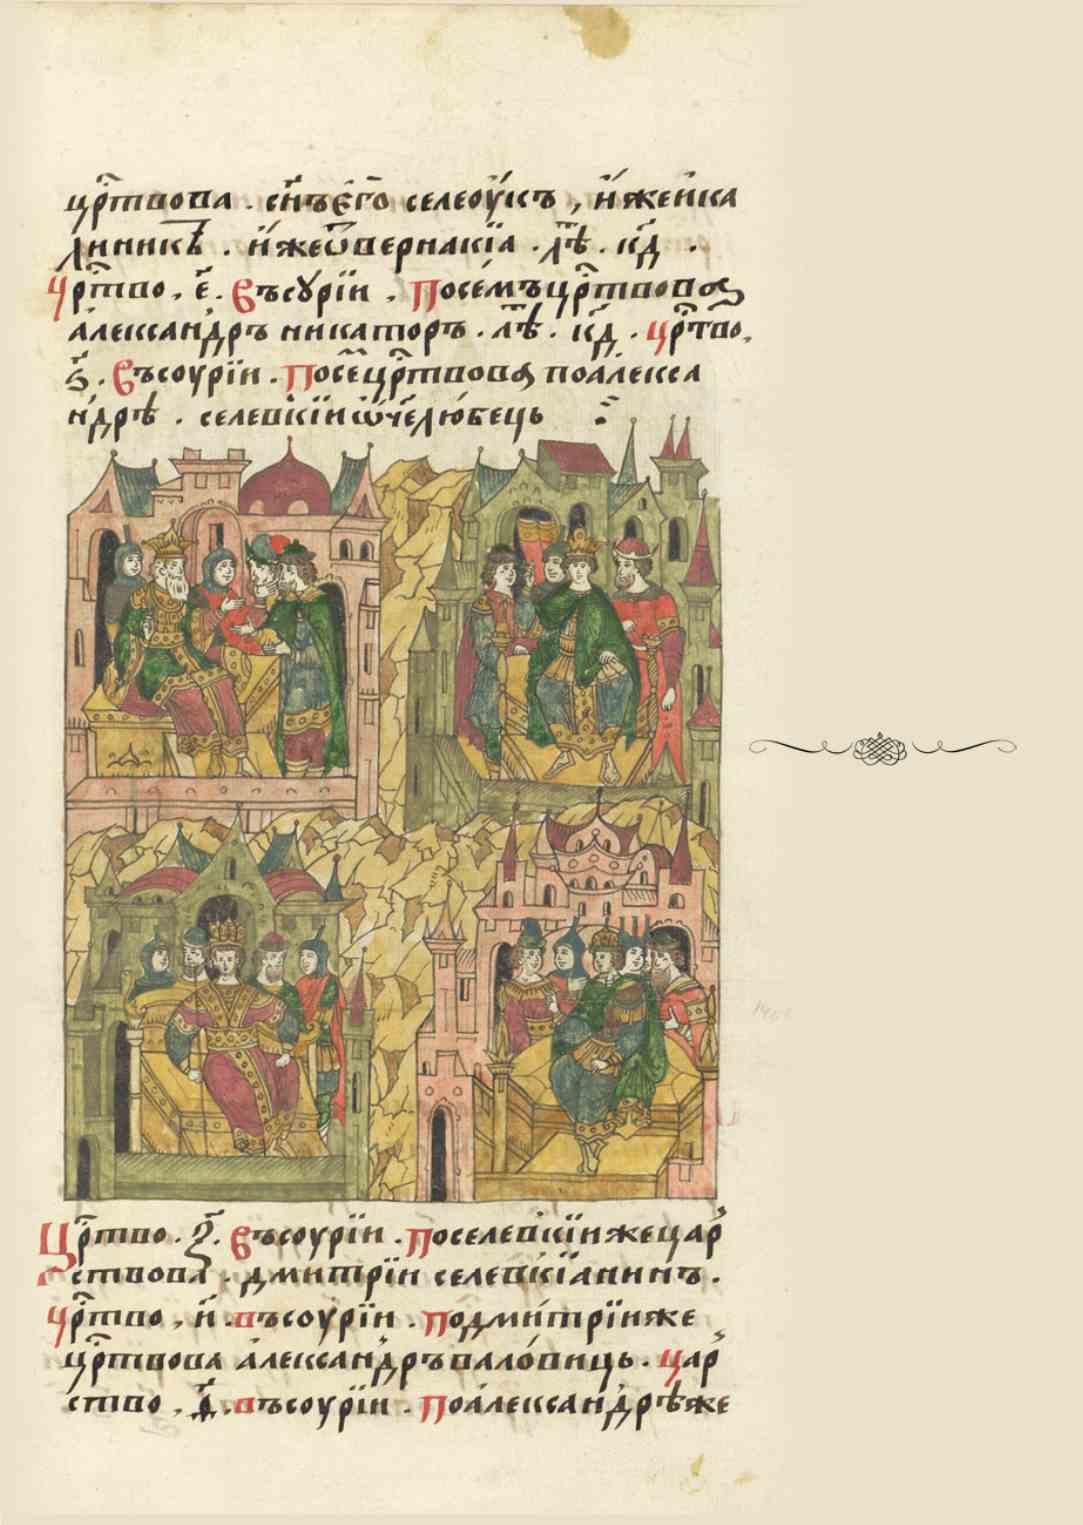 цр҃твова . сн҃ъ є҆го̀ селеоу́къ , и҆́же и҆ ка
линикъ . и҆́же ѿ вернакі́а . лѣ̑ . кд҃ .
Цр҃тво , є҃ . Въ сꙋ́рїи . По се́мъ цр҃твова
а҆леѯандръ никаторъ . лѣ̑ . кд҃ . Цр҃тво ,
ѕ҃ . Въ соурі́и . По се́ цр҃твова по а҆ле́кса
н́дрѣ . селевкі́и ѿч҃елю́бець
Цр҃тво . з҃ . Въ соурі́и . По селевкі́и же цар
ствова . дмитрїи селевкїа́нинъ .
Цр҃тво , и҃ . въ соурі́и . По дми́трїи же
цр҃твова а҆леѯа́ндръ вало́виць . Цар
ство , ѳ҃ . въ соурі́и . По а҆леѯа́ндрѣ же